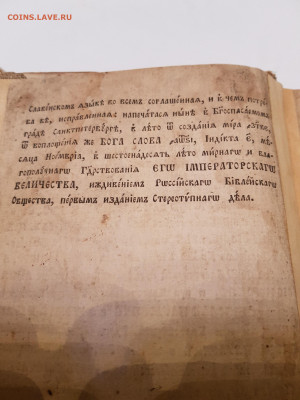 COINS.LAVE.RU
Славе́нскомъ ѧ҆зы́кѣ во всемъ соглаше́ннаѧ, и҆ въ чемъ потре́-
ба бѣ̀, и҆спра́вленнаѧ: напеча́тасѧ ны́нѣ въ Бг҃оспаса́емомъ
гра́дѣ Санктпетербꙋ́ргѣ, въ лѣ́то ѿ созда́нїѧ мі́ра
ѿ воплоще́нїѧ же БОГА СЛОВА Індїкта мѣ́-
сѧца Ное́мврїа, въ шестоена́десѧть лѣ́то ми́рнагѡ и҆ бла-
гополꙋ́чнагѡ Гдⷭ҇рствованїѧ Є҆ГѠ̀ І҆МПЕРА́ТОРСКАГѠ
ВЕЛИ́ЧЕСТВА, и҆ждиве́нїемъ Рѡссі́йскагѡ Бїбле́йскагѡ
О҆́бщества, пе́рвымъ и҆зда́нїемъ Стереотѵ́пнагѡ дѣ́ла.